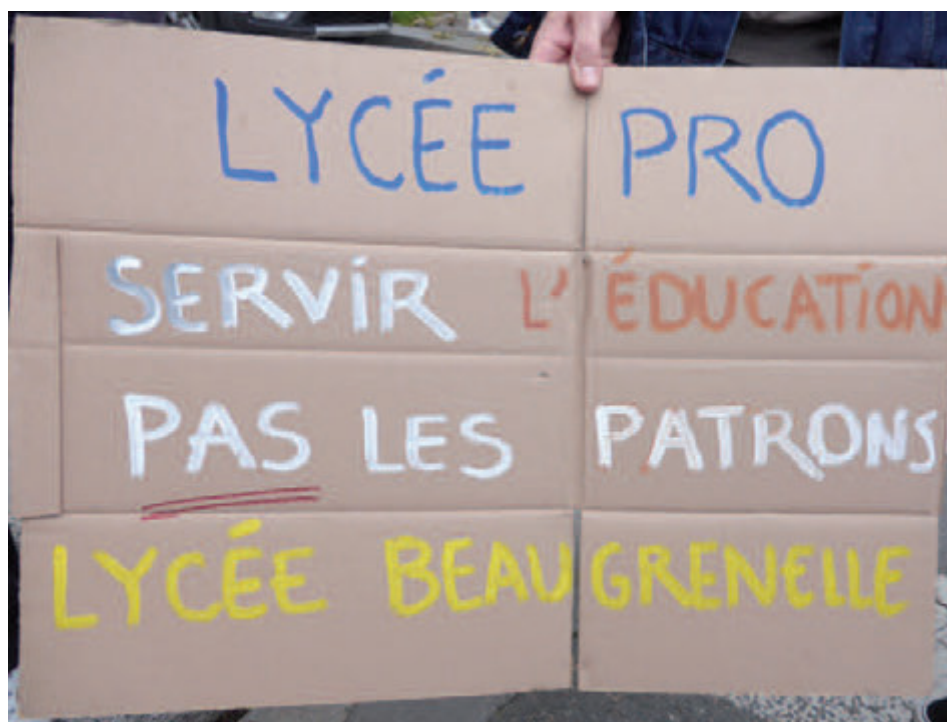 LYCÉE PRO
SERVIR L'ÉDUCATION
PAS LES PATRONS
LYCÉE BEAUGRENELLE